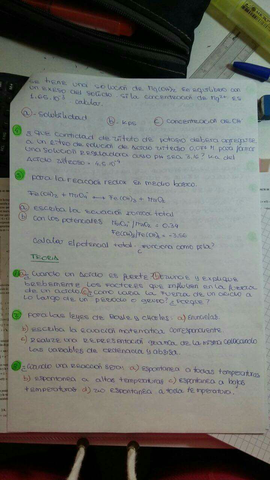 Se tiene una solución de Mg(OH)2 en equilibrio con
un exceso del sólido. Si la concentración de Mg2+ es
1.65.10-4 calcular
a- Solubilidad b. Kps c. Concentración de OH
¿Que cantidad de nitrito de potasio deberá agregarse
a un litro de solución de ácido nitroso 0.09 M para formar
una solución reguladora cuyo pH sea 3.5? Ka del
ácido nitroso = 4.5.10-4
para la reacción redox en medio básico
Fe(OH)2 + MnO4- → Fe(OH)3 + MnO2
a) escriba la ecuación iónica total
b) con los potenciales
Calcular el potencial total ¿funciona como pila?
TEORÍA
¿Cuando un ácido es fuerte? b) enuncie y explique
brevemente los factores que influyen en la fuerza
de un ácido. c) como varía la fuerza de un ácido a lo
largo de un período o grupo? ¿Porque?
para las leyes de Boyle y Charles: a) enúncielas
b) escriba la ecuación matemática correspondiente
c) Realice una representación gráfica de la misma aplicando
las variables de ordenada y abscisa.
¿Cuando una reacción será: a) espontanea a todas temperaturas
b) espontanea a altas temperaturas c) espontanea a bajas
temperaturas d) no espontanea a toda temperatura.